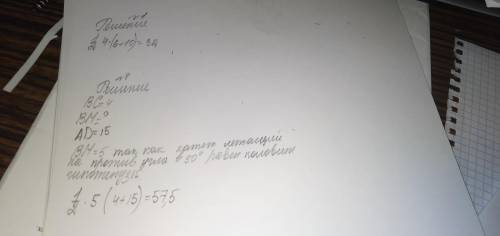 Решение
1/2 4·(6+10)=32
Решение
BC=4
BH=?
AD=15
BH=5 так как катет лежащий
на против угла в 30° равен половине
гипотенузы
1/2 · 5 (4+15)=57,5